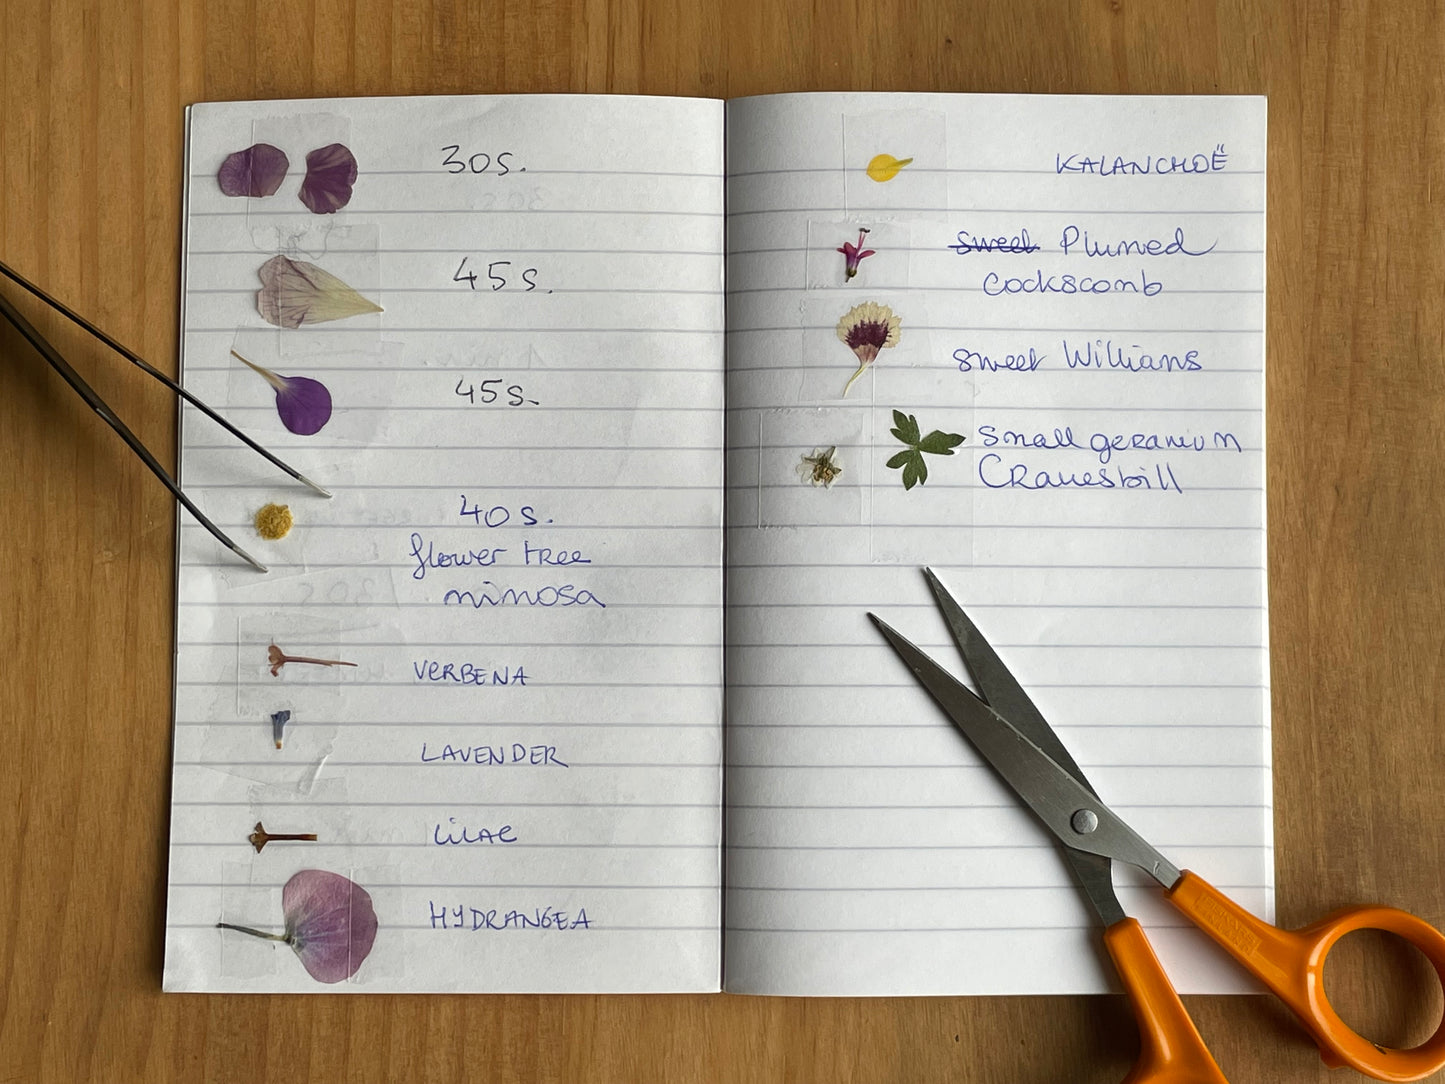 30s.
45s.
45s.
40s.
flower tree
mimosa
VERBENA
LAVENDER
LILAC
HYDRANGEA
KALANCHOË
sweet Plumed
Cockscomb
sweet Williams
Small geranium
Cranesbill